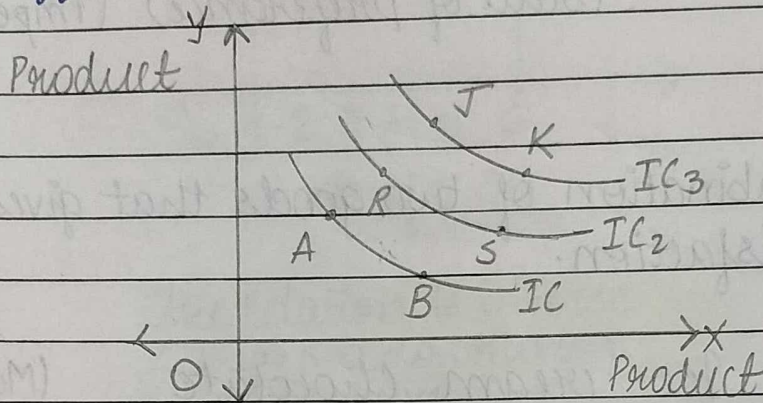 y
Product
J
K
IC3
R
IC2
A
S
B
IC
X
O
Product